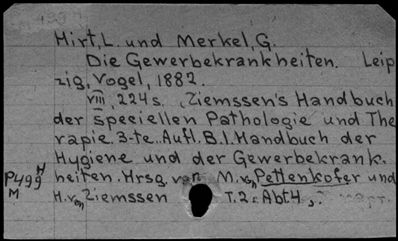 Hirt, L. und Merkel, G.
Die Gewerbekrankheiten. Leip
zig, Vogel, 1882.
VIII, 224 s. (Ziemssen's Handbuch
der speciellen Pathologie und The
rapie. 3-te. Aufl. B.1. Handbuch der
Hygiene und der Gewerbekrank.
heiten. Hrsg. van M. von Pettenkofer und
H. von Ziemssen T. 2. Abt. 4.
P499 H
M